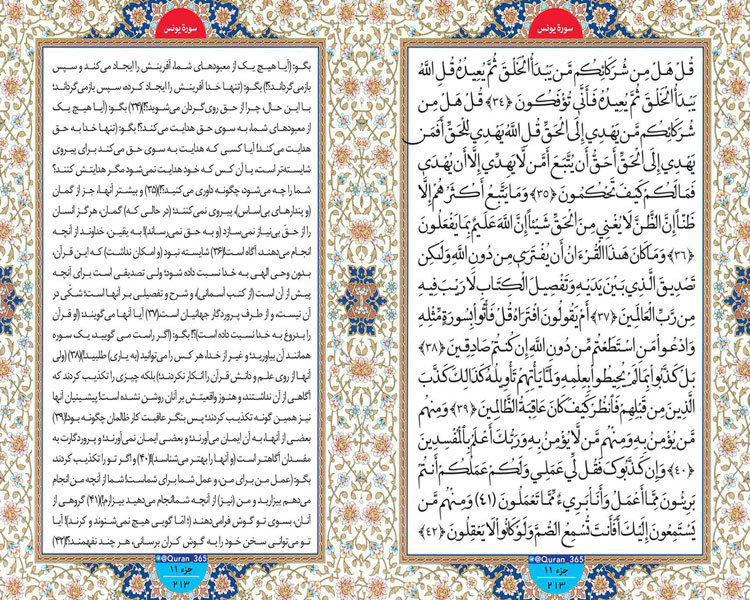 سورهٔ یونس
قُلْ هَلْ مِن شُرَكَائِكُم مَّن يَبْدَأُ الْخَلْقَ ثُمَّ يُعِيدُهُ قُلِ اللَّهُ
يَبْدَأُ الْخَلْقَ ثُمَّ يُعِيدُهُ فَأَنَّىٰ تُؤْفَكُونَ ﴿٣٤﴾ قُلْ هَلْ مِن
شُرَكَائِكُم مَّن يَهْدِي إِلَى الْحَقِّ قُلِ اللَّهُ يَهْدِي لِلْحَقِّ أَفَمَن
يَهْدِي إِلَى الْحَقِّ أَحَقُّ أَن يُتَّبَعَ أَمَّن لَّا يَهِدِّي إِلَّا أَن يُهْدَىٰ
فَمَا لَكُمْ كَيْفَ تَحْكُمُونَ ﴿٣٥﴾ وَمَا يَتَّبِعُ أَكْثَرُهُمْ إِلَّا
ظَنًّا إِنَّ الظَّنَّ لَا يُغْنِي مِنَ الْحَقِّ شَيْئًا إِنَّ اللَّهَ عَلِيمٌ بِمَا يَفْعَلُونَ
﴿٣٦﴾ وَمَا كَانَ هَـٰذَا الْقُرْءَانُ أَن يُفْتَرَىٰ مِن دُونِ اللَّهِ وَلَـٰكِن
تَصْدِيقَ الَّذِي بَيْنَ يَدَيْهِ وَتَفْصِيلَ الْكِتَابِ لَا رَيْبَ فِيهِ
مِن رَّبِّ الْعَالَمِينَ ﴿٣٧﴾ أَمْ يَقُولُونَ افْتَرَاهُ قُلْ فَأْتُوا بِسُورَةٍ مِّثْلِهِ
وَادْعُوا مَنِ اسْتَطَعْتُم مِّن دُونِ اللَّهِ إِن كُنتُمْ صَادِقِينَ ﴿٣٨﴾
بَلْ كَذَّبُوا بِمَا لَمْ يُحِيطُوا بِعِلْمِهِ وَلَمَّا يَأْتِهِمْ تَأْوِيلُهُ كَذَٰلِكَ كَذَّبَ
الَّذِينَ مِن قَبْلِهِمْ فَانظُرْ كَيْفَ كَانَ عَاقِبَةُ الظَّالِمِينَ ﴿٣٩﴾ وَمِنْهُم
مَّن يُؤْمِنُ بِهِ وَمِنْهُم مَّن لَّا يُؤْمِنُ بِهِ وَرَبُّكَ أَعْلَمُ بِالْمُفْسِدِينَ
﴿٤٠﴾ وَإِن كَذَّبُوكَ فَقُل لِّي عَمَلِي وَلَكُمْ عَمَلُكُمْ أَنتُم
بَرِيئُونَ مِمَّا أَعْمَلُ وَأَنَا بَرِيءٌ مِّمَّا تَعْمَلُونَ ﴿٤١﴾ وَمِنْهُم مَّن
يَسْتَمِعُونَ إِلَيْكَ أَفَأَنتَ تُسْمِعُ الصُّمَّ وَلَوْ كَانُوا لَا يَعْقِلُونَ ﴿٤٢﴾
@Quran_365
جزء ۱۱
۲۱۳
سورهٔ یونس
بگو: (آیا هیچ یک از معبودهای شما، آفرینش را ایجاد می‌کند و سپس
بازمی‌گرداند؟!) بگو: (تنها خدا آفرینش را ایجاد کرده، سپس بازمی‌گرداند؛
با این حال، چرا از حق روی‌گردان می‌شوید؟!)(۳۴) بگو: (آیا هیچ یک
از معبودهای شما، به سوی حق هدایت می‌کند؟!) بگو: (تنها خدا به حق
هدایت می‌کند! آیا کسی که هدایت به سوی حق می‌کند برای پیروی
شایسته‌تر است، یا آن کس که خود هدایت نمی‌شود مگر هدایتش کنند؟
شما را چه می‌شود، چگونه داوری می‌کنید؟!)(۳۵) و بیشتر آنها، جز از گمان
(و پندارهای بی‌اساس)، پیروی نمی‌کنند؛ (در حالی که) گمان، هرگز انسان
را از حقّ بی‌نیاز نمی‌سازد (و به حق نمی‌رساند)! به یقین، خداوند از آنچه
انجام می‌دهند، آگاه است!(۳۶) شایسته نبود (و امکان نداشت) که این قرآن،
بدون وحی الهی به خدا نسبت داده شود؛ ولی تصدیقی است برای آنچه
پیش از آن است (از کتب آسمانی)، و شرح و تفصیلی بر آنها است؛ شکّی در
آن نیست، و از طرف پروردگار جهانیان است.(۳۷) آیا آنها می‌گویند: (او قرآن
را بدروغ به خدا نسبت داده است)؟! بگو: (اگر راست می گویید، یک سوره
همانند آن بیاورید؛ و غیر از خدا، هر کس را می‌توانید (به یاری) طلبید!)(۳۸) (ولی
آنها از روی علم و دانش قرآن را انکار نکردند؛) بلکه چیزی را تکذیب کردند که
آگاهی از آن نداشتند، و هنوز واقعیتش بر آنان روشن نشده است! پیشینیان آنها
نیز همین گونه تکذیب کردند؛ پس بنگر عاقبت کار ظالمان چگونه بود!(۳۹)
بعضی از آنها، به آن ایمان می‌آورند؛ و بعضی ایمان نمی‌آورند؛ و پروردگارت به
مفسدان آگاهتر است (و آنها را بهتر می‌شناسد)!(۴۰) و اگر تو را تکذیب کردند،
بگو: (عمل من برای من، و عمل شما برای شماست! شما از آنچه من انجام
می‌دهم بیزارید و من (نیز) از آنچه شما انجام می‌دهید بیزارم!)(۴۱) گروهی از
آنان، بسوی تو گوش فرامی‌دهند (؛ امّا گویی هیچ نمی‌شنوند و کرند)! آیا
تو می‌توانی سخن خود را به گوش کران برسانی، هر چند نفهمند؟!(۴۲)
@Quran_365
جزء ۱۱
۲۱۳